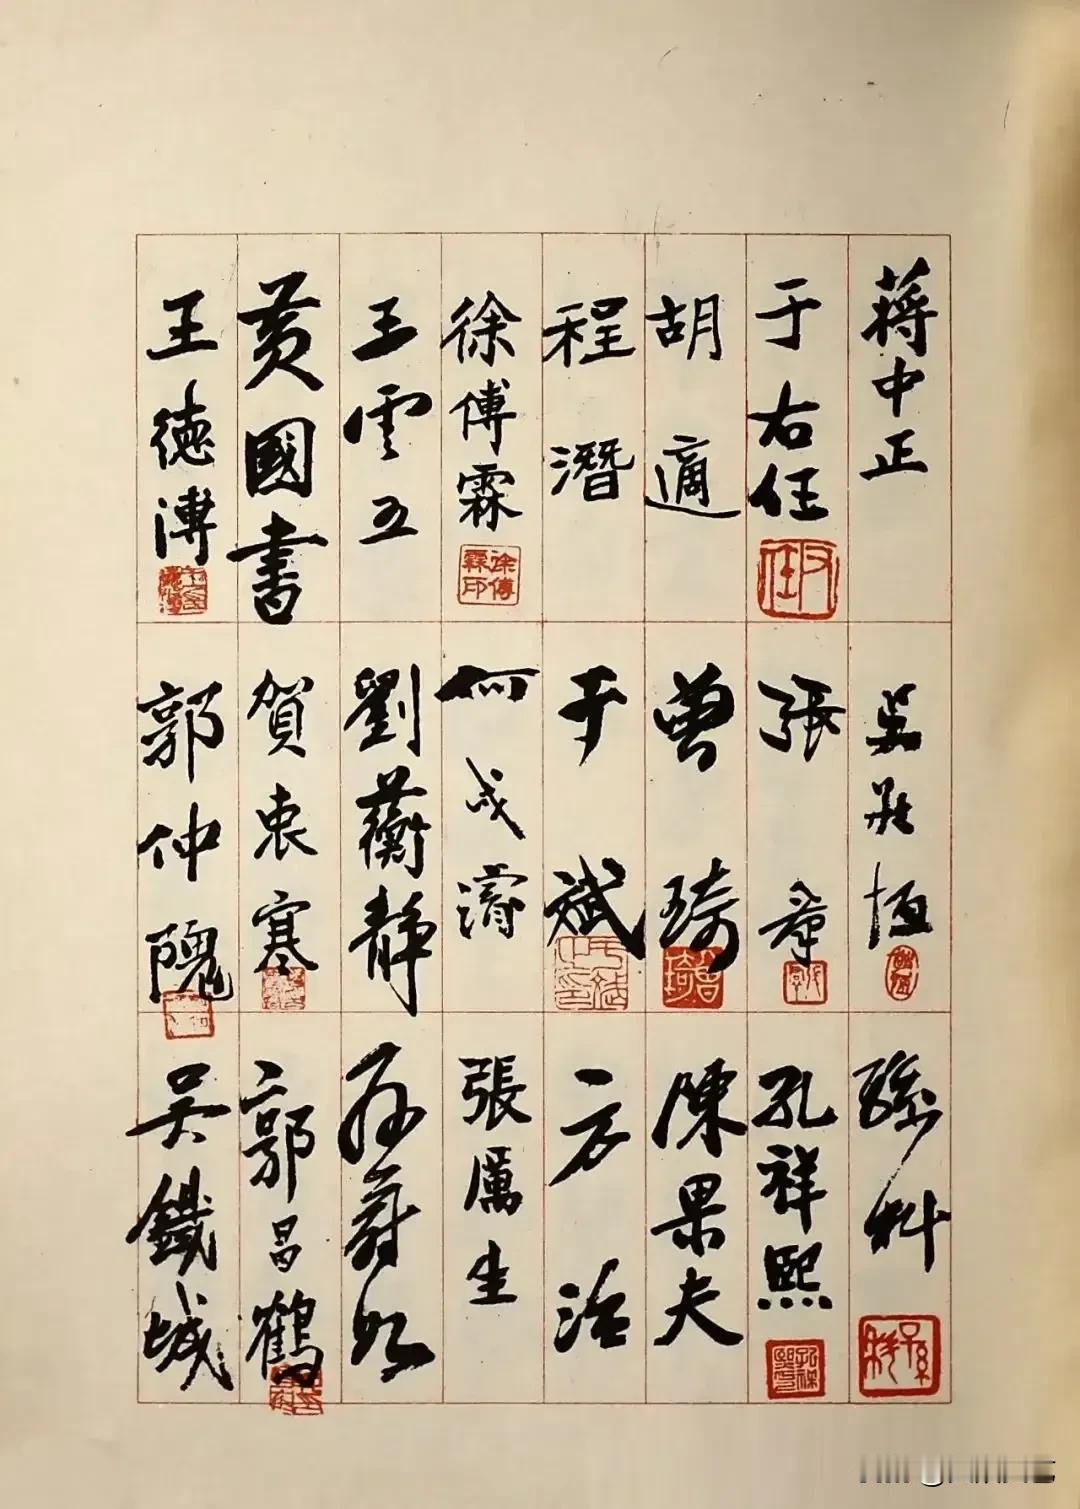 蔣中正
于右任
右任
胡適
程潛
徐傅霖
徐傅霖印
王雲五
黃國書
王德溥
吳敬恒
張羣
曾琦
曾琦
于斌
何成濬
劉蘅靜
賀衷寒
郭仲隗
孫科
孫科
孔祥熙
陳果夫
方治
張厲生
孫蔚如
郭昌鶴
吳鐵城